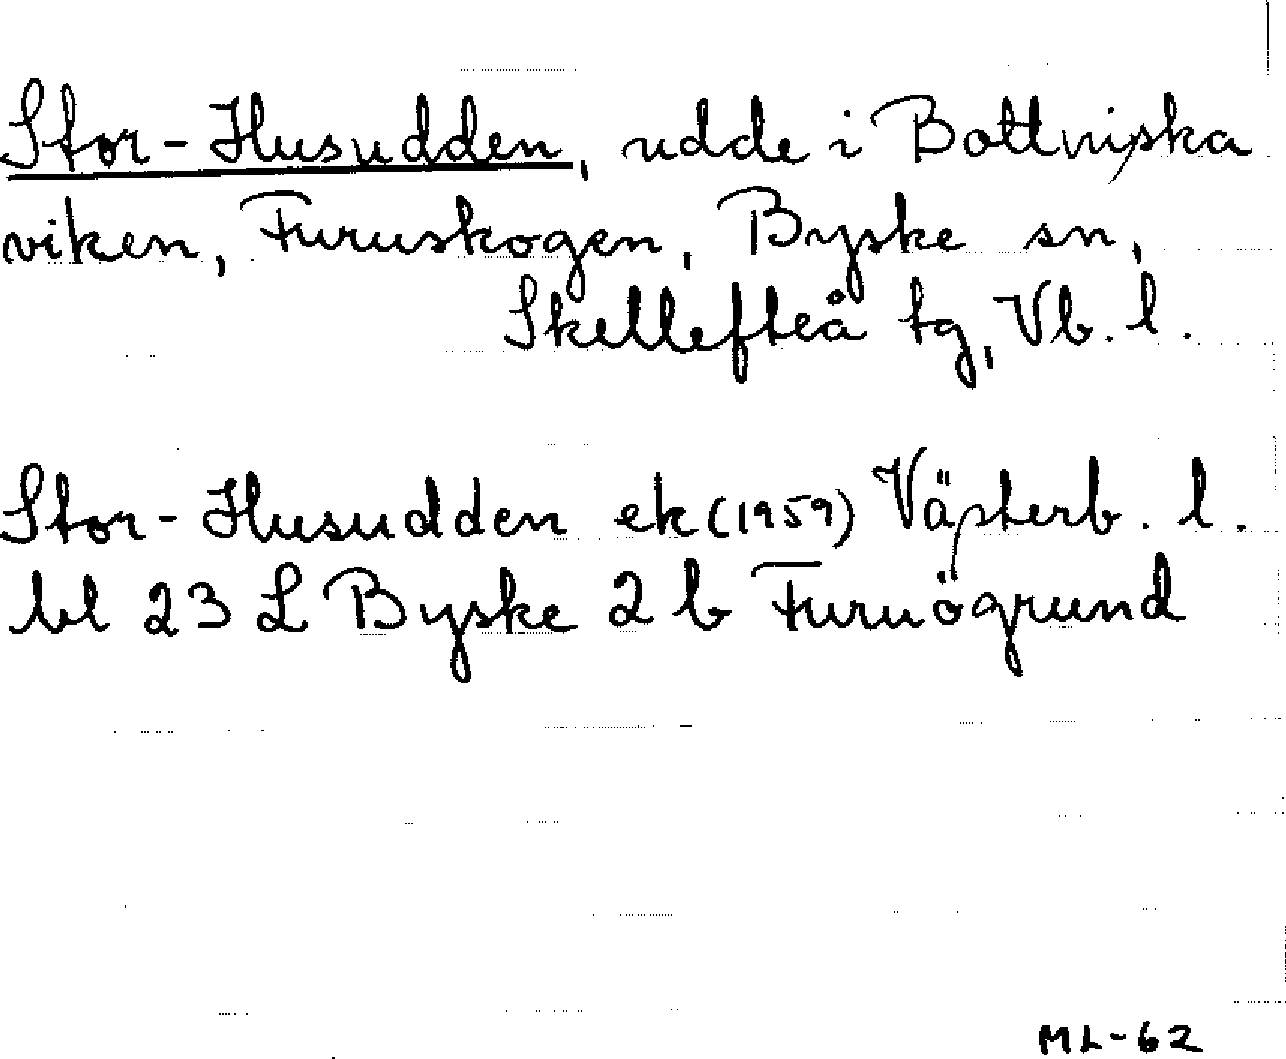 Stor-Husudden, udde i Bottniska
viken, Furuskogen, Byske sn,
Skellefteå tg, Vb. l.
Stor-Husudden ek (1959) Västerb. l.
bl 23 L Byske 2 b Furuögrund
ML-62